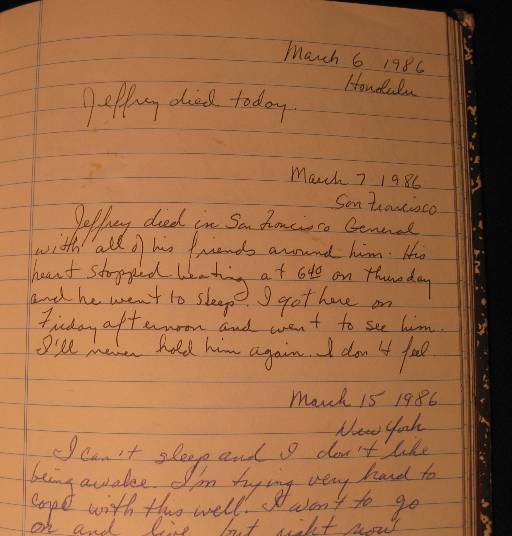 March 6 1986
Honolulu
Jeffrey died today.
March 7 1986
San Francisco
Jeffrey died in San Francisco General
with all of his friends around him. His
heart stopped beating at 640 on thursday
and he went to sleep. I got here on
Friday afternoon and went to see him.
I'll never hold him again. I don't feel
March 15 1986
New York
I can't sleep and I don't like
being awake. I'm trying very hard to
cope with this well. I want to go
on and live but right now